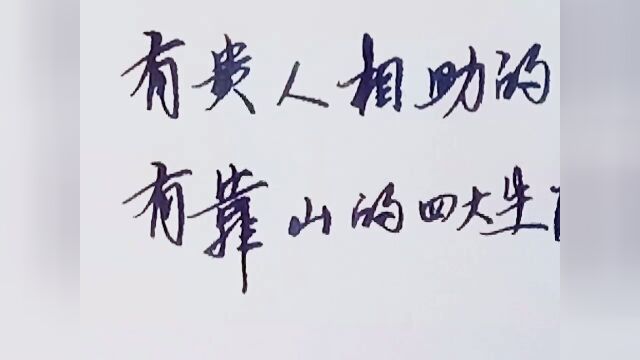 有贵人相助的
有靠山的四大生